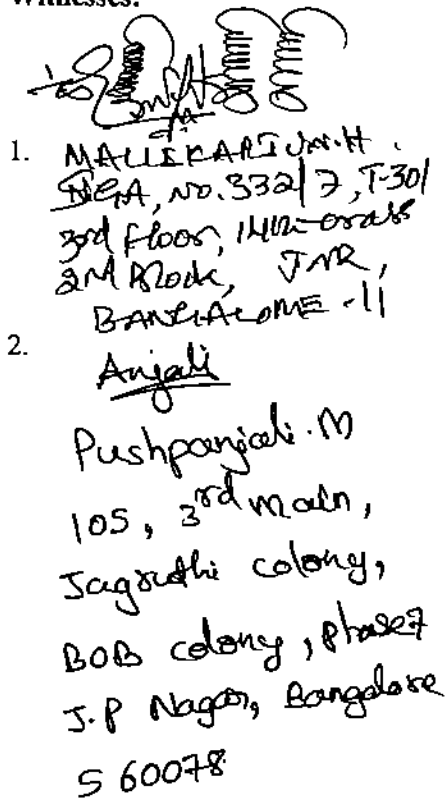 Witnesses:
1. MALLIKARJUN.H.
No. 332/7, T-301
3rd Floor, 14th cross
2nd Block, JNR,
BANGALORE - 11
2. Anjali
Pushpanjali. M
105, 3rd main,
Jagruthi colony,
BOB colony, phase 7
J.P Nagar, Bangalore
560078